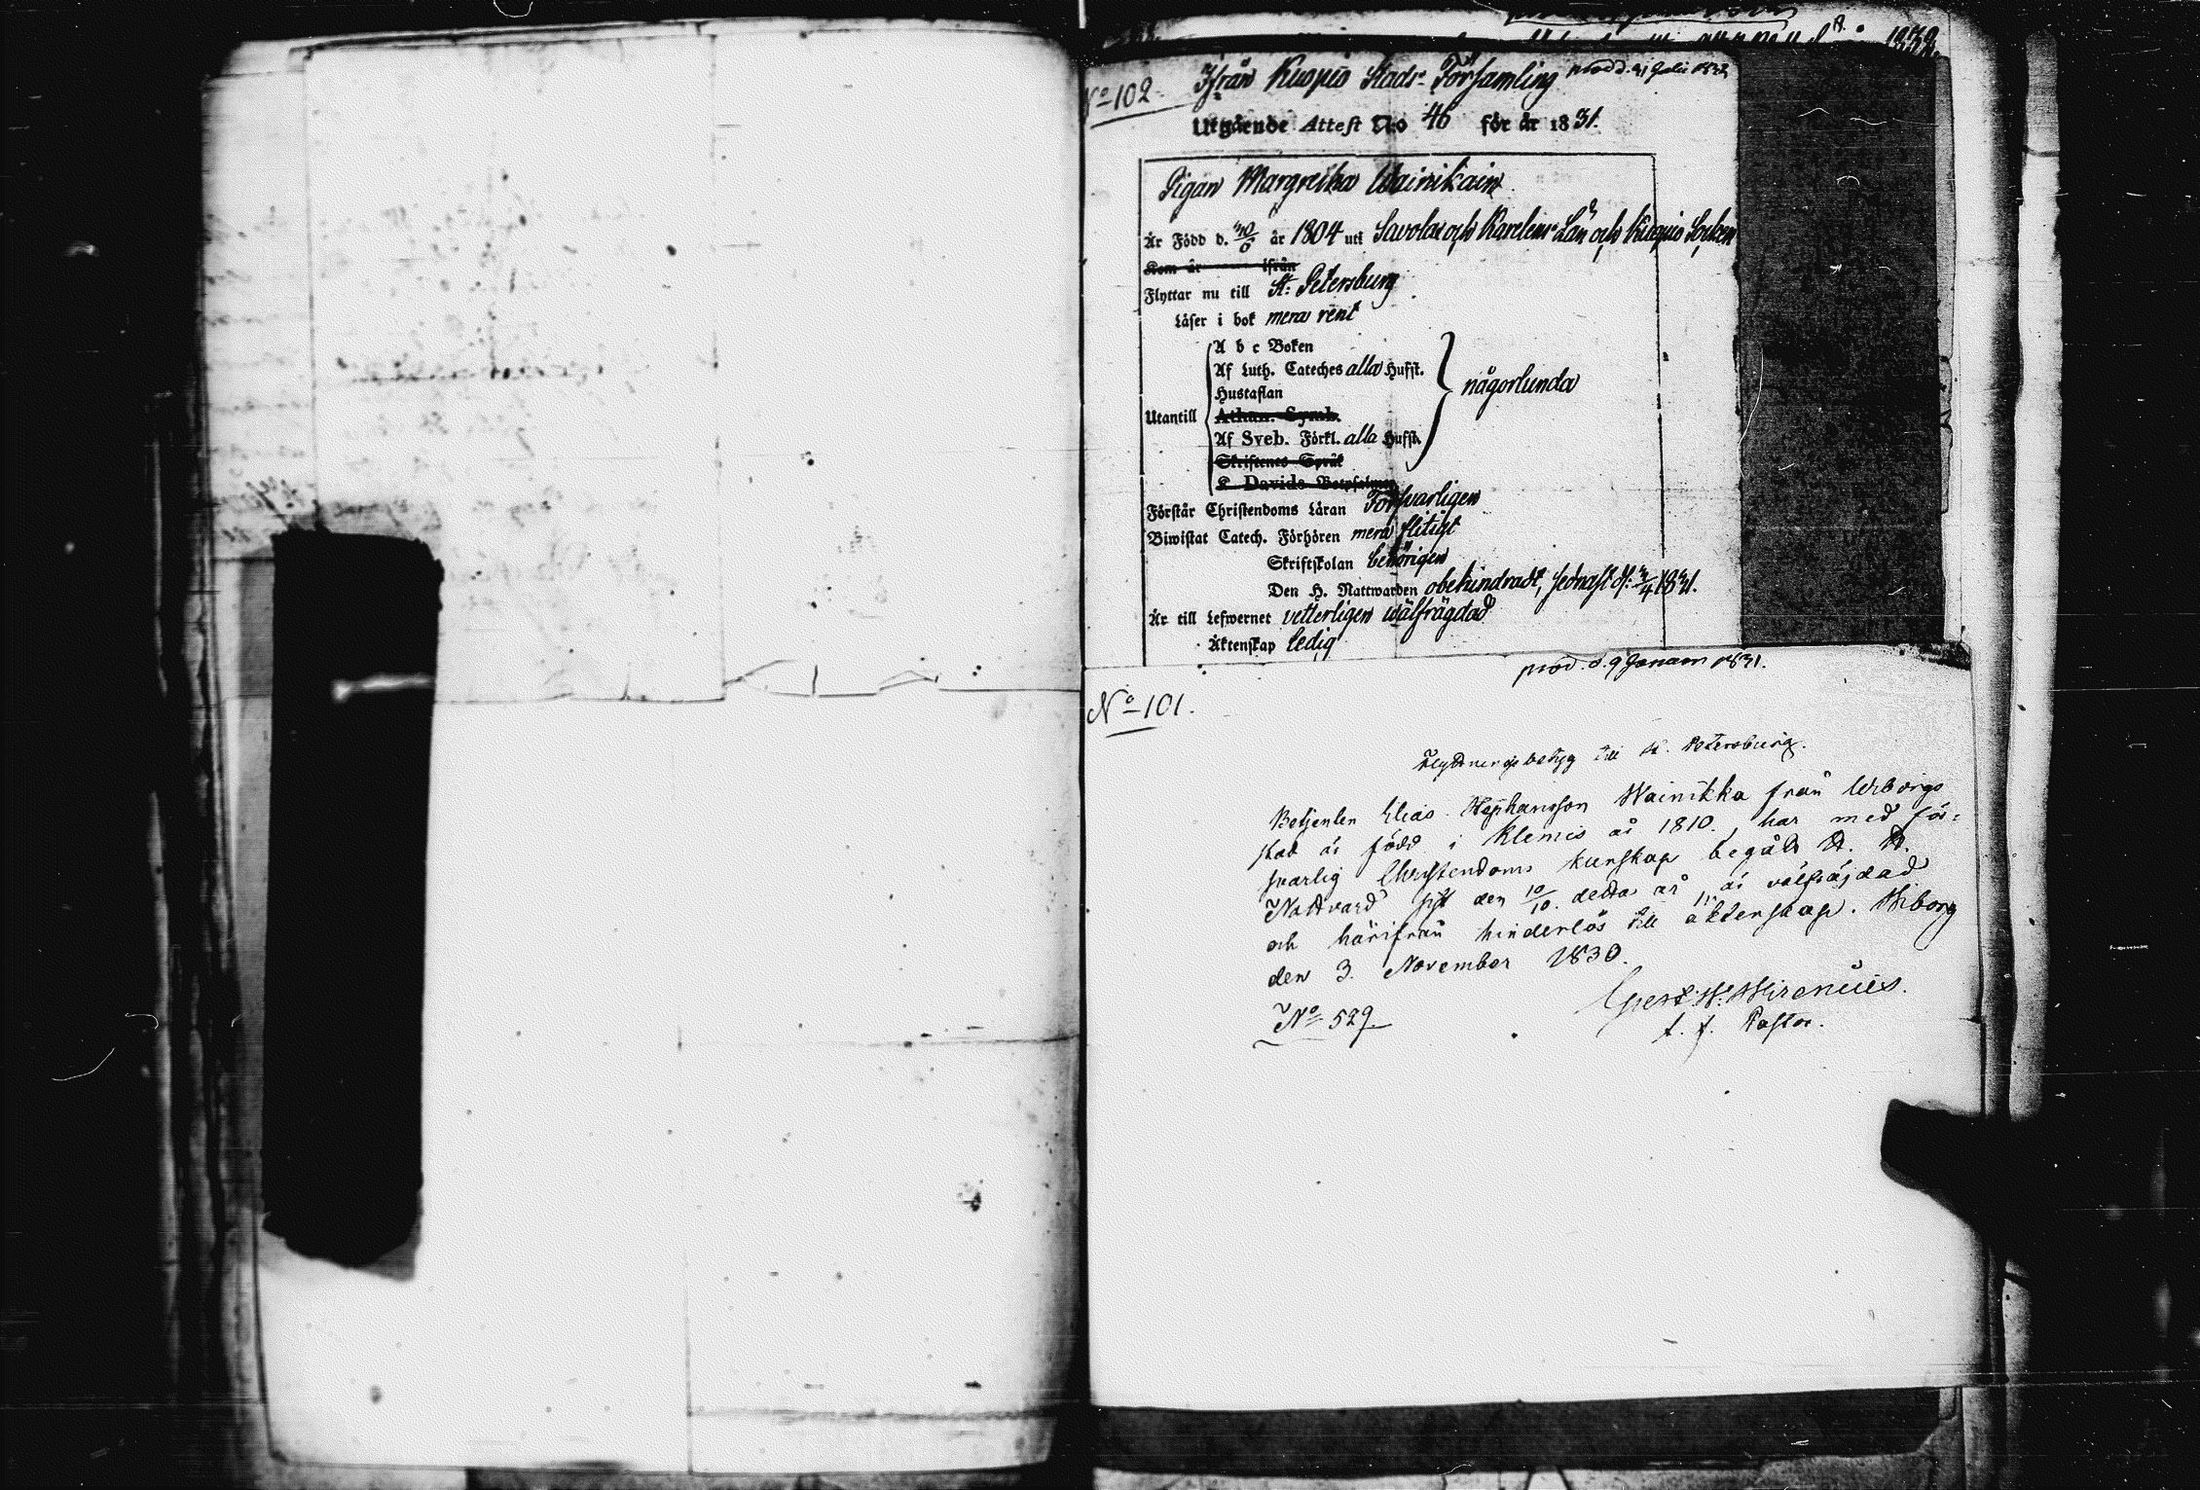 No 102
Ifrån Kuopio Stads Församling
prod. d. 31 Julii 1832
Utgående Attest No 46 för år 1831.
Pigan Margretha Wainikain
Är Född d. år 1804 uti Savolax och Karelens Län och Kuopio Socken
Kom år ifrån
Flyttar nu till St. Petersburg
Läser i bok mera rent
A b c Boken
Af Luth. Cateches alla Hufst.
Hustaflan
någorlunda
Utantill
Athan. Symb.
Af Sveb. Förkl. alla Hufst.
Skriftenes Språk
K. Davids Botpsalmer
Förstår Christendoms Läran Försvarligen
Biwistat Catech. Förhören mera flitigt
Skriftskolan behörigen
Den H. Nattwarden obehindradt, sednast d. 3/4 1831.
Är till Lefwernet vetterligen wälfrägdad
Äktenskap Ledig
prod. d. 9 Januari 1831.
No 101.
Flyttningsbetyg till St. Petersburg.
Betjenten Elias Stephansson Wainikka från Wiborgs
stad är född i Klemis år 1810, har med för-
svarlig Christendoms kunskap begått H. H.
Nattvard sist den 10/10 detta år, är välfräjdad
och härifrån hinderlös till äktenskap. Wiborg
den 3. November 1830.
No 529
t. f. Pastor.